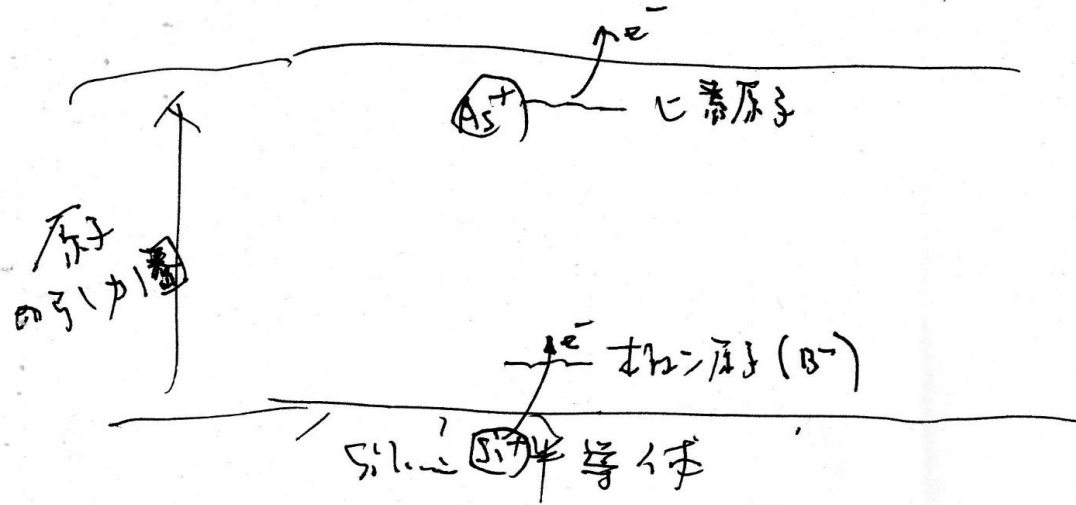 e⁻
As⁺ ヒ素原子
原子
の引力
e⁻ ホロン原子(B⁻)
Si⁺ 半導体